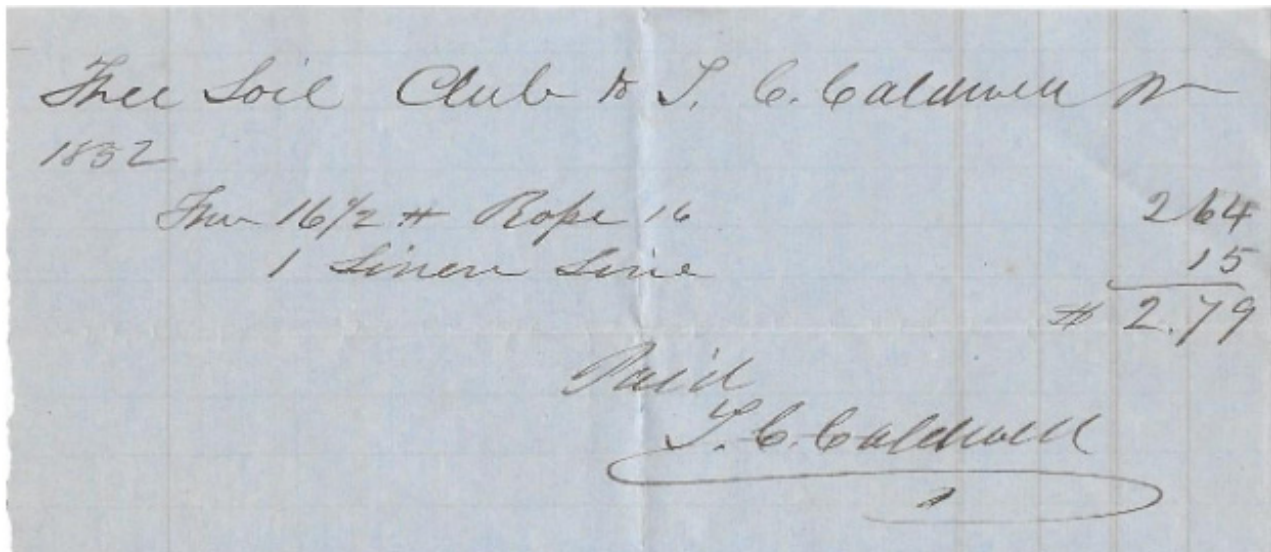 Free Soil Club to T. C. Caldwell Dr
1852
For 16 1/2 # Rope 16 264
1 Linen Line 15
$ 2.79
Paid
T. C. Caldwell